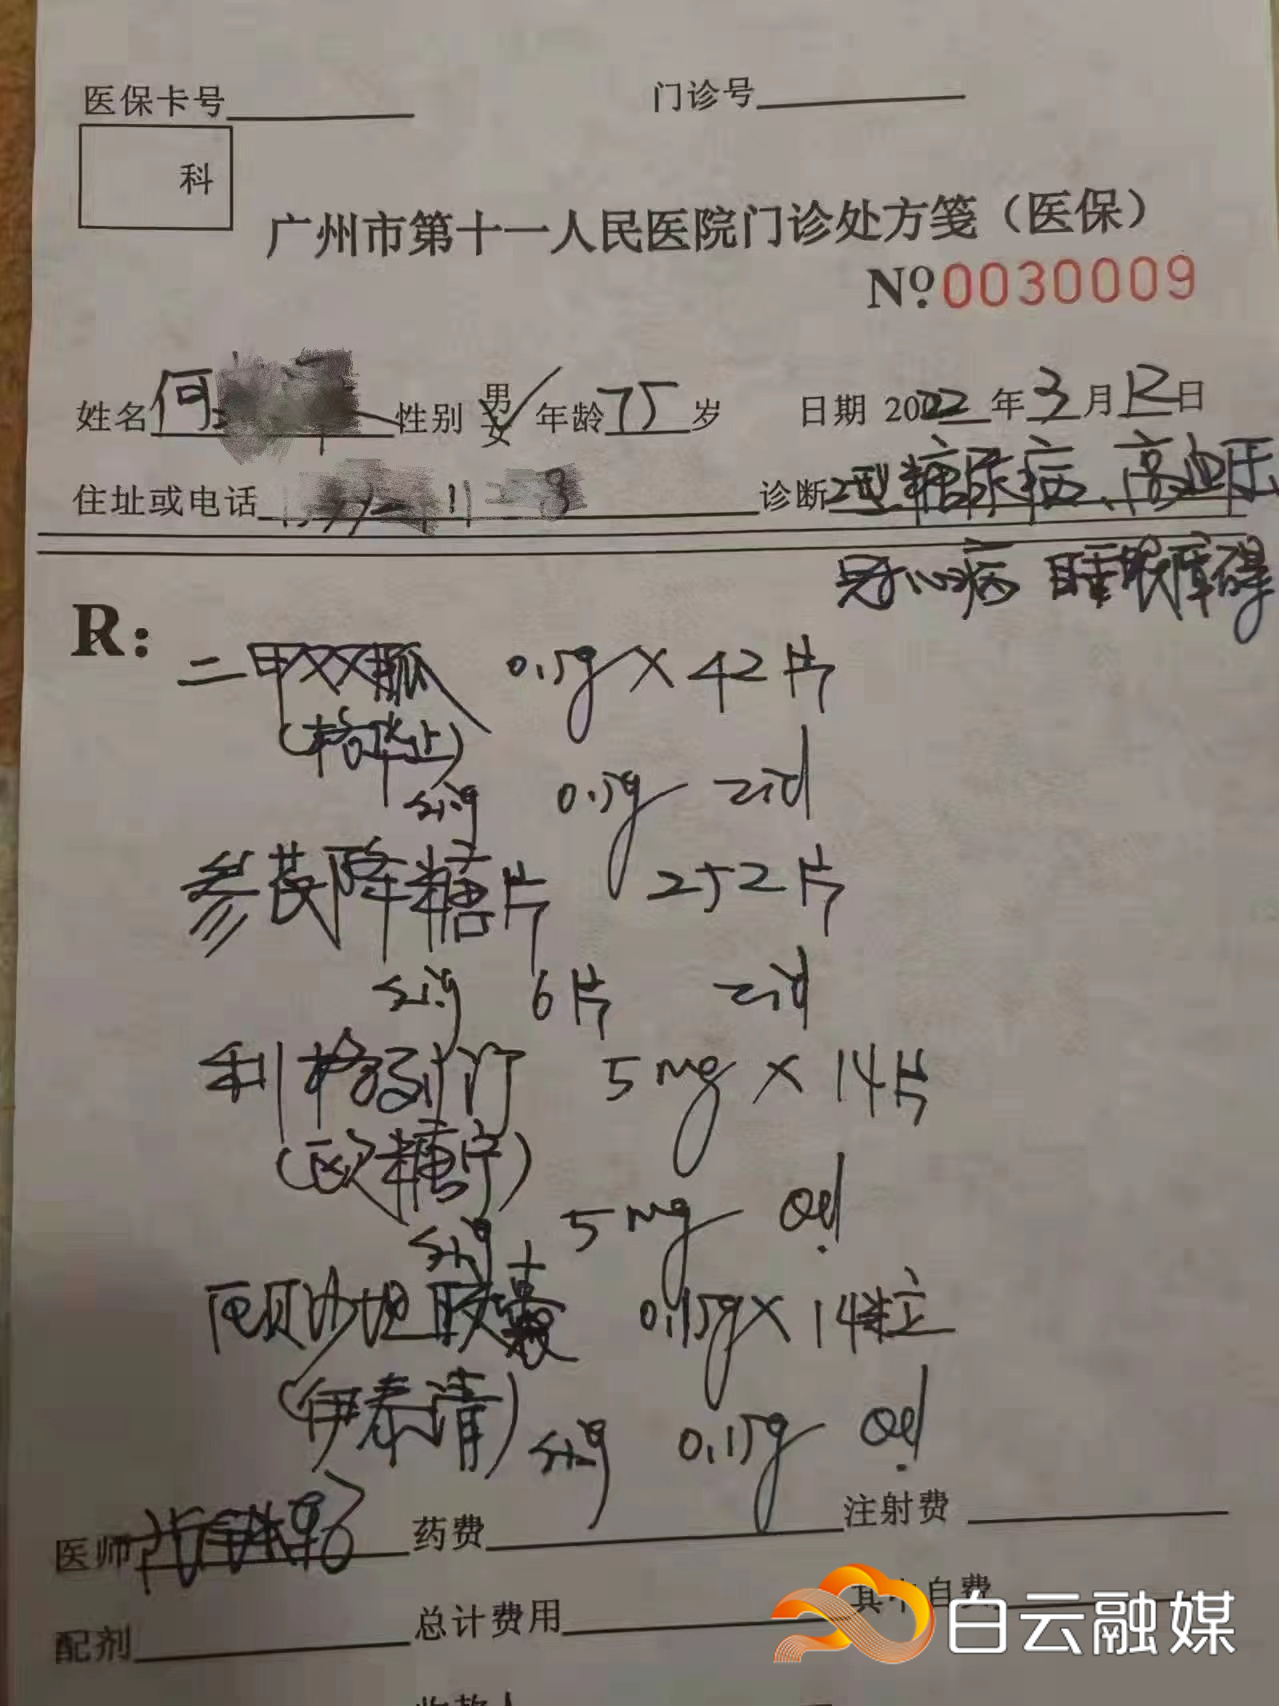 医保卡号 门诊号
科
广州市第十一人民医院门诊处方笺（医保）
Nº 0030009
姓名 何 性别 男 女 年龄 75 岁 日期 2022 年 3 月 12 日
住址或电话 诊断 2型糖尿病、高血压
冠心病 睡眠障碍
R：
二甲双胍 0.5g × 42片
(格华止)
sig 0.5g tid
参芪降糖片 252片
sig 6片 tid
利格列汀 5mg × 14片
(欧糖宁)
sig 5mg qd
厄贝沙坦胶囊 0.15g × 14粒
(伊泰青)
sig 0.15g qd
医师 药费 注射费
配剂 总计费用 其中自费
收款人
白云融媒